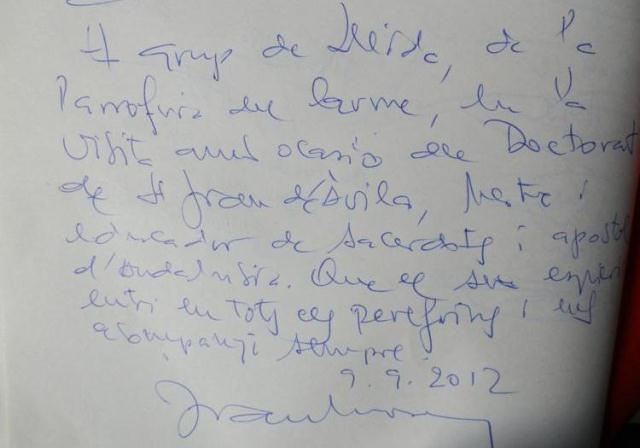 Al grup de Lleida, de la
Parroquia del Carme, en la
visita amb ocasio del Doctorat
de St Joan d'Àvila, Mestre i
educador de sacerdots i apostol
d'Andalusia. Que el seu esperit
entri en tots els peregrins i ens
acompanyi sempre.
9.9.2012